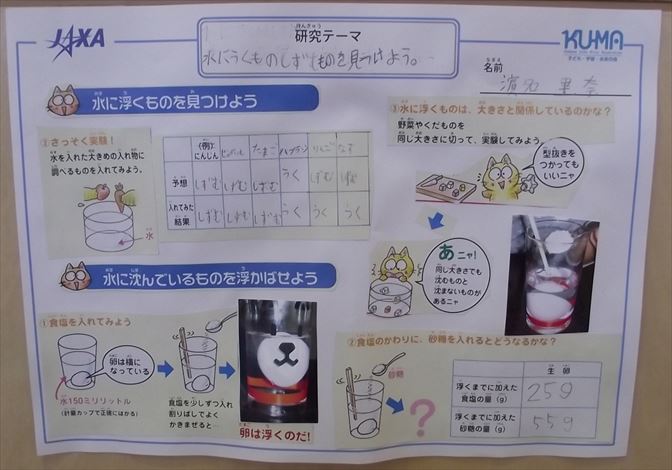 JAXA
研究テーマ
けんきゅう
水にうくものしずむものを見つけよう。
KU-MA
子ども・宇宙・未来の会
名前
なまえ
水に浮くものを見つけよう
②さっそく実験!
水を入れた大きめの入れ物に
調べるものを入れてみよう。
水
(例)
にんじん
たまご
りんご
なす
予想
しずむ
しずむ
しずむ
うく
しずむ
入れてみた
結果
しずむ
しずむ
しずむ
うく
うく
うく
③水に浮くものは、大きさと関係しているのかな?
野菜やくだものを
同じ大きさに切って、実験してみよう
型抜きを
つかっても
いいニャ
あニャ!
同じ大きさでも
沈むものと
沈まないものが
あるニャ
水に沈んでいるものを浮かばせよう
①食塩を入れてみよう
卵は横に
なっている
水150ミリリットル
(計量カップで正確にはかる)
食塩を少しずつ入れ
割りばしでよく
かきまぜると…
卵は浮くのだ!
②食塩のかわりに、砂糖を入れるとどうなるかな?
砂糖
?
生卵
浮くまでに加えた
食塩の量(g)
25g
浮くまでに加えた
砂糖の量(g)
55g